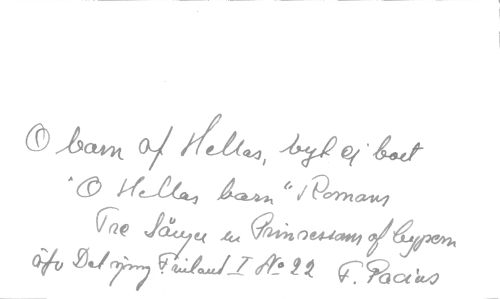 O barn af Hellas, byt ej bort
"O Hellas barn" Romans
Tre Sånger ur Prinsessan af Cypern
äfv Det sjung. Finland I No 22 F. Pacius